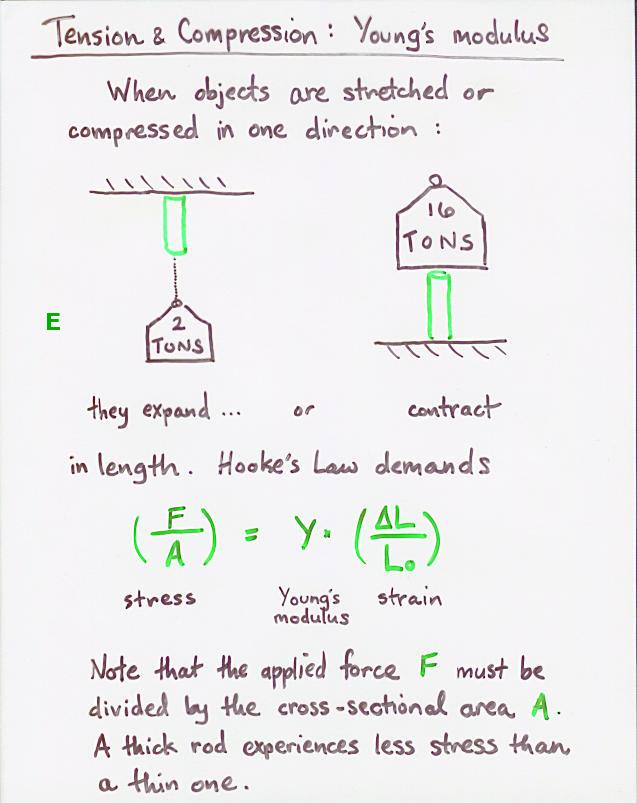 Tension & Compression: Young's modulus
When objects are stretched or
compressed in one direction:
16
TONS
E
2
TONS
they expand ... or contract
in length. Hooke's Law demands
(F/A) = Y · (ΔL/L₀)
stress Young's modulus strain
Note that the applied force F must be
divided by the cross-sectional area A.
A thick rod experiences less stress than
a thin one.